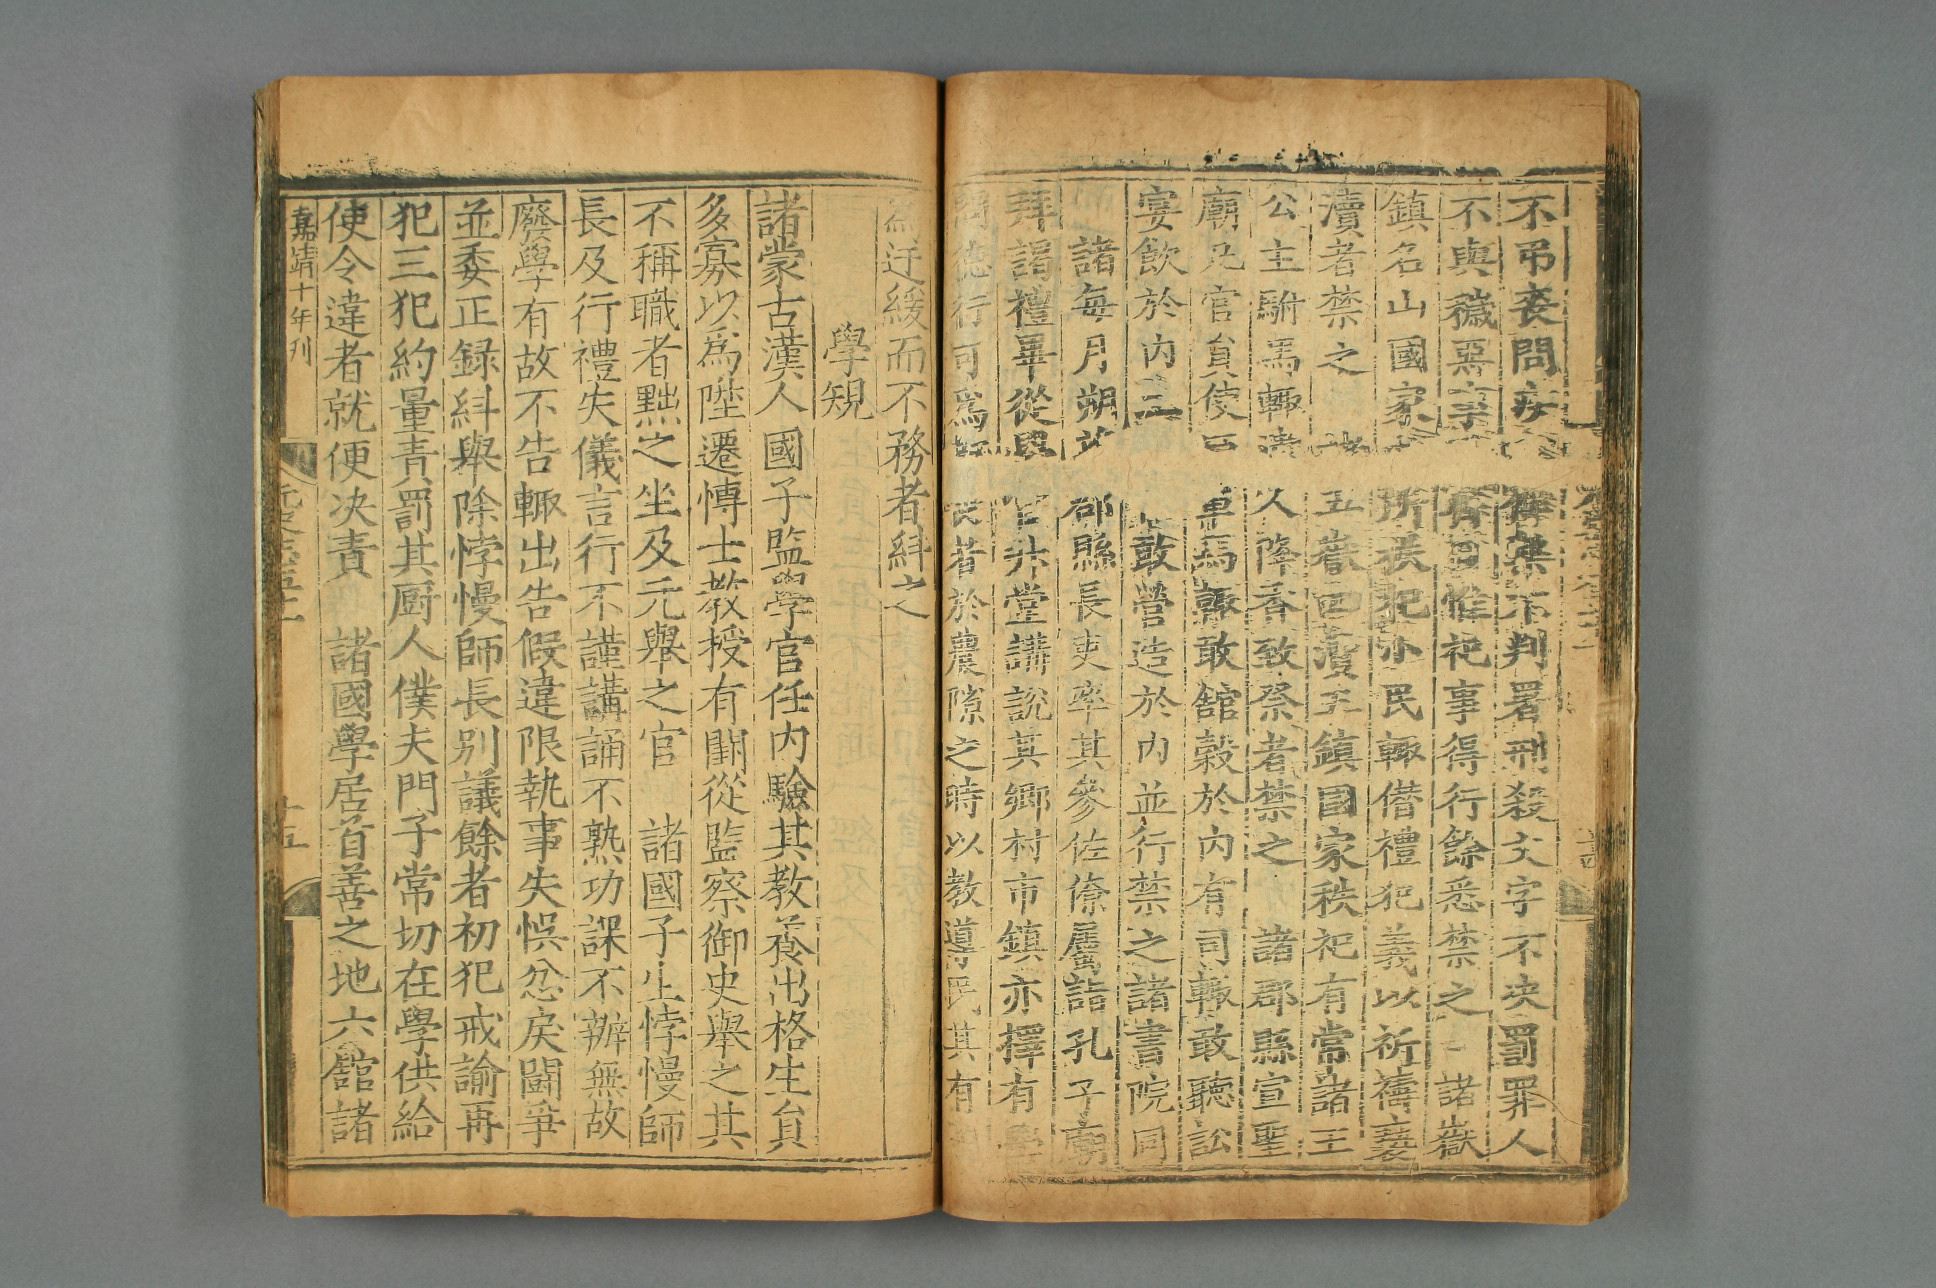 不弔喪問疾不判署刑殺文字不决罰罪人
不與穢惡祀事得行餘悉禁之諸嶽
鎮名山國家所祀小民輒僣禮犯義以祈禱褻
瀆者禁之五嶽四瀆五鎮國家秩祀有常諸王
公主駙馬輒人降香致祭者禁之諸郡縣宣聖
廟凡官員使軍馬輒敢舘穀於内有司輒敢聽訟
宴飲於内敢營造於内並行禁之諸書院同
諸每月朔望郡縣長吏率其參佐僚屬詣孔子廟
拜謁禮畢從學官升堂講說其鄉村市鎮亦擇有學
問德行可爲師長者於農隙之時以教導民其有
爲迂緩而不務者紏之
學規
諸蒙古漢人國子監學官任内驗其教養出格生員
多寡以爲陞遷愽士教授有闕從監察御史舉之其
不稱職者黜之坐及元舉之官　諸國子生悖慢師
長及行禮失儀言行不謹講誦不熟功課不辦無故
廢學有故不告輒出告假違限執事失悞忿戾鬭爭
並委正録紏舉除悖慢師長别議餘者初犯戒諭再
犯三犯約量責罰其厨人僕夫門子常切在學供給
使令違者就便决責　諸國學居首善之地六舘諸
嘉靖十年刊
元史志五十一
十五